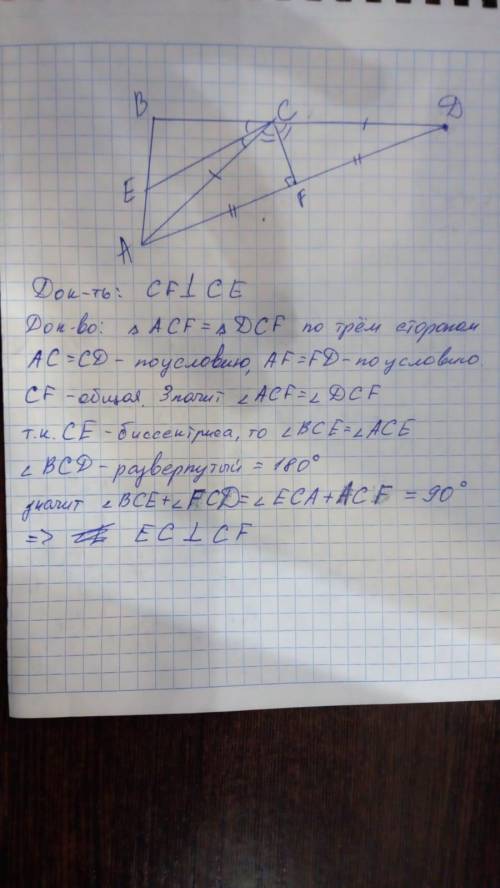 B C D
E
F
A
Док-ть: CF ⊥ CE
Док-во: △ ACF = △ DCF по трём сторонам
AC = CD - по условию, AF = FD - по условию.
CF - общая. Значит ∠ACF = ∠DCF
т.к. CE - биссектриса, то ∠BCE = ∠ACE
∠BCD - развернутый = 180°
значит ∠BCE + ∠FCD = ∠ECA + ACF = 90°
=> EC ⊥ CF